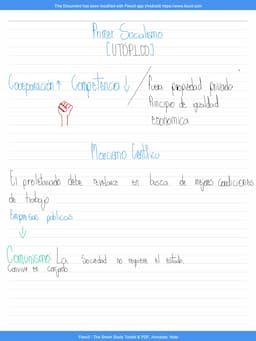 This Document has been modified with Flexcil app (Android) https://www.flexcil.com
Primer Socialismo
[UTÓPICO]
Cooperación ↑ Competencia ↓ / Poca propiedad privada
Principio de igualdad
Economica
Marxismo Científico
El proletariado debe revelarse en busca de mejores condiciones
de trabajo
Empresas publicas
↓
Comunismo La Sociedad no requiere el estado.
Convive en conjunto
Flexcil - The Smart Study Toolkit & PDF, Annotate, Note